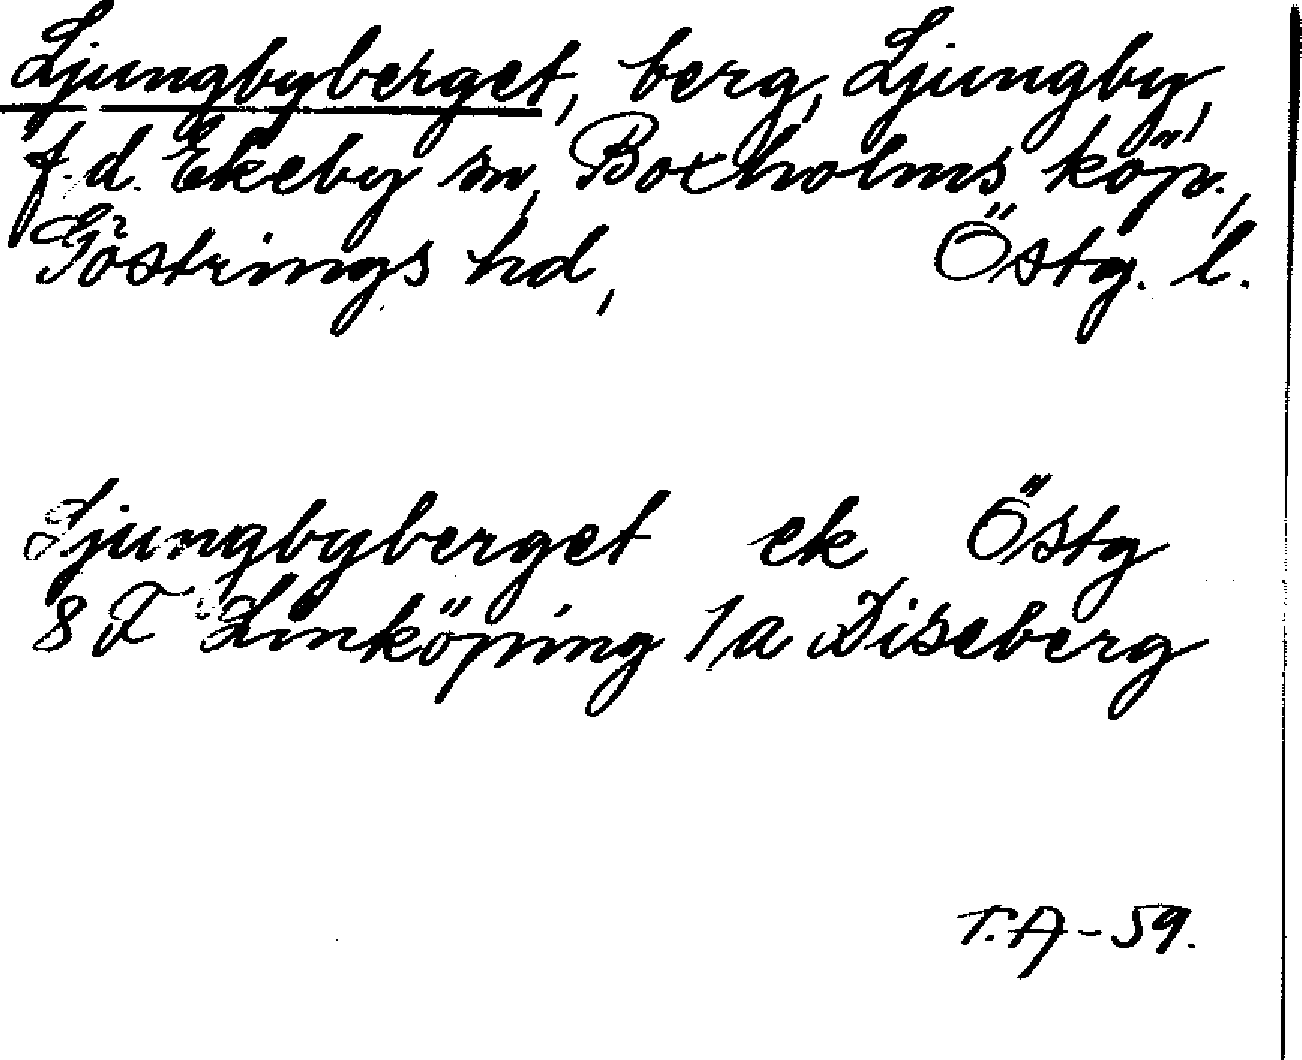 Ljungbyberget, berg, Ljungby,
f.d. Ekeby sn, Boxholms köp.,
Göstrings hd, Östg. l.
Ljungbyberget ek Östg
8F Linköping 1a Diseberg
T.A-59.